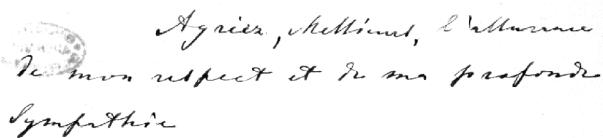 Agréez, Messieurs, l'assurance
de mon respect et de ma profonde
Sympathie